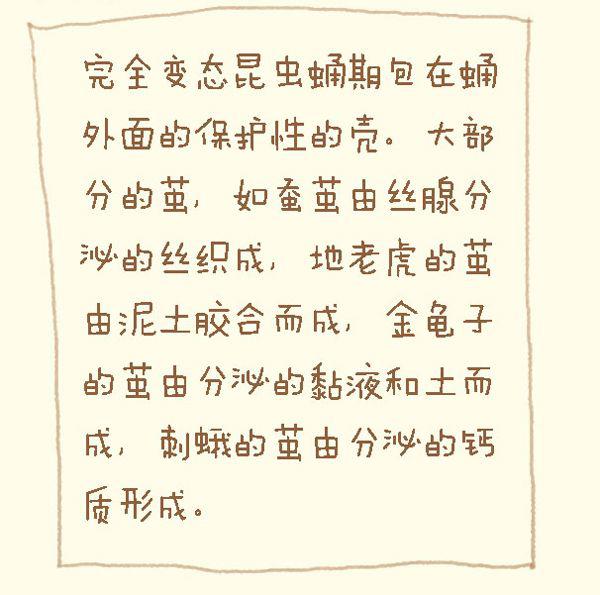 完全变态昆虫蛹期包在蛹
外面的保护性的壳。大部
分的茧，如蚕茧由丝腺分
泌的丝织成，地老虎的茧
由泥土胶合而成，金龟子
的茧由分泌的黏液和土而
成，刺蛾的茧由分泌的钙
质形成。